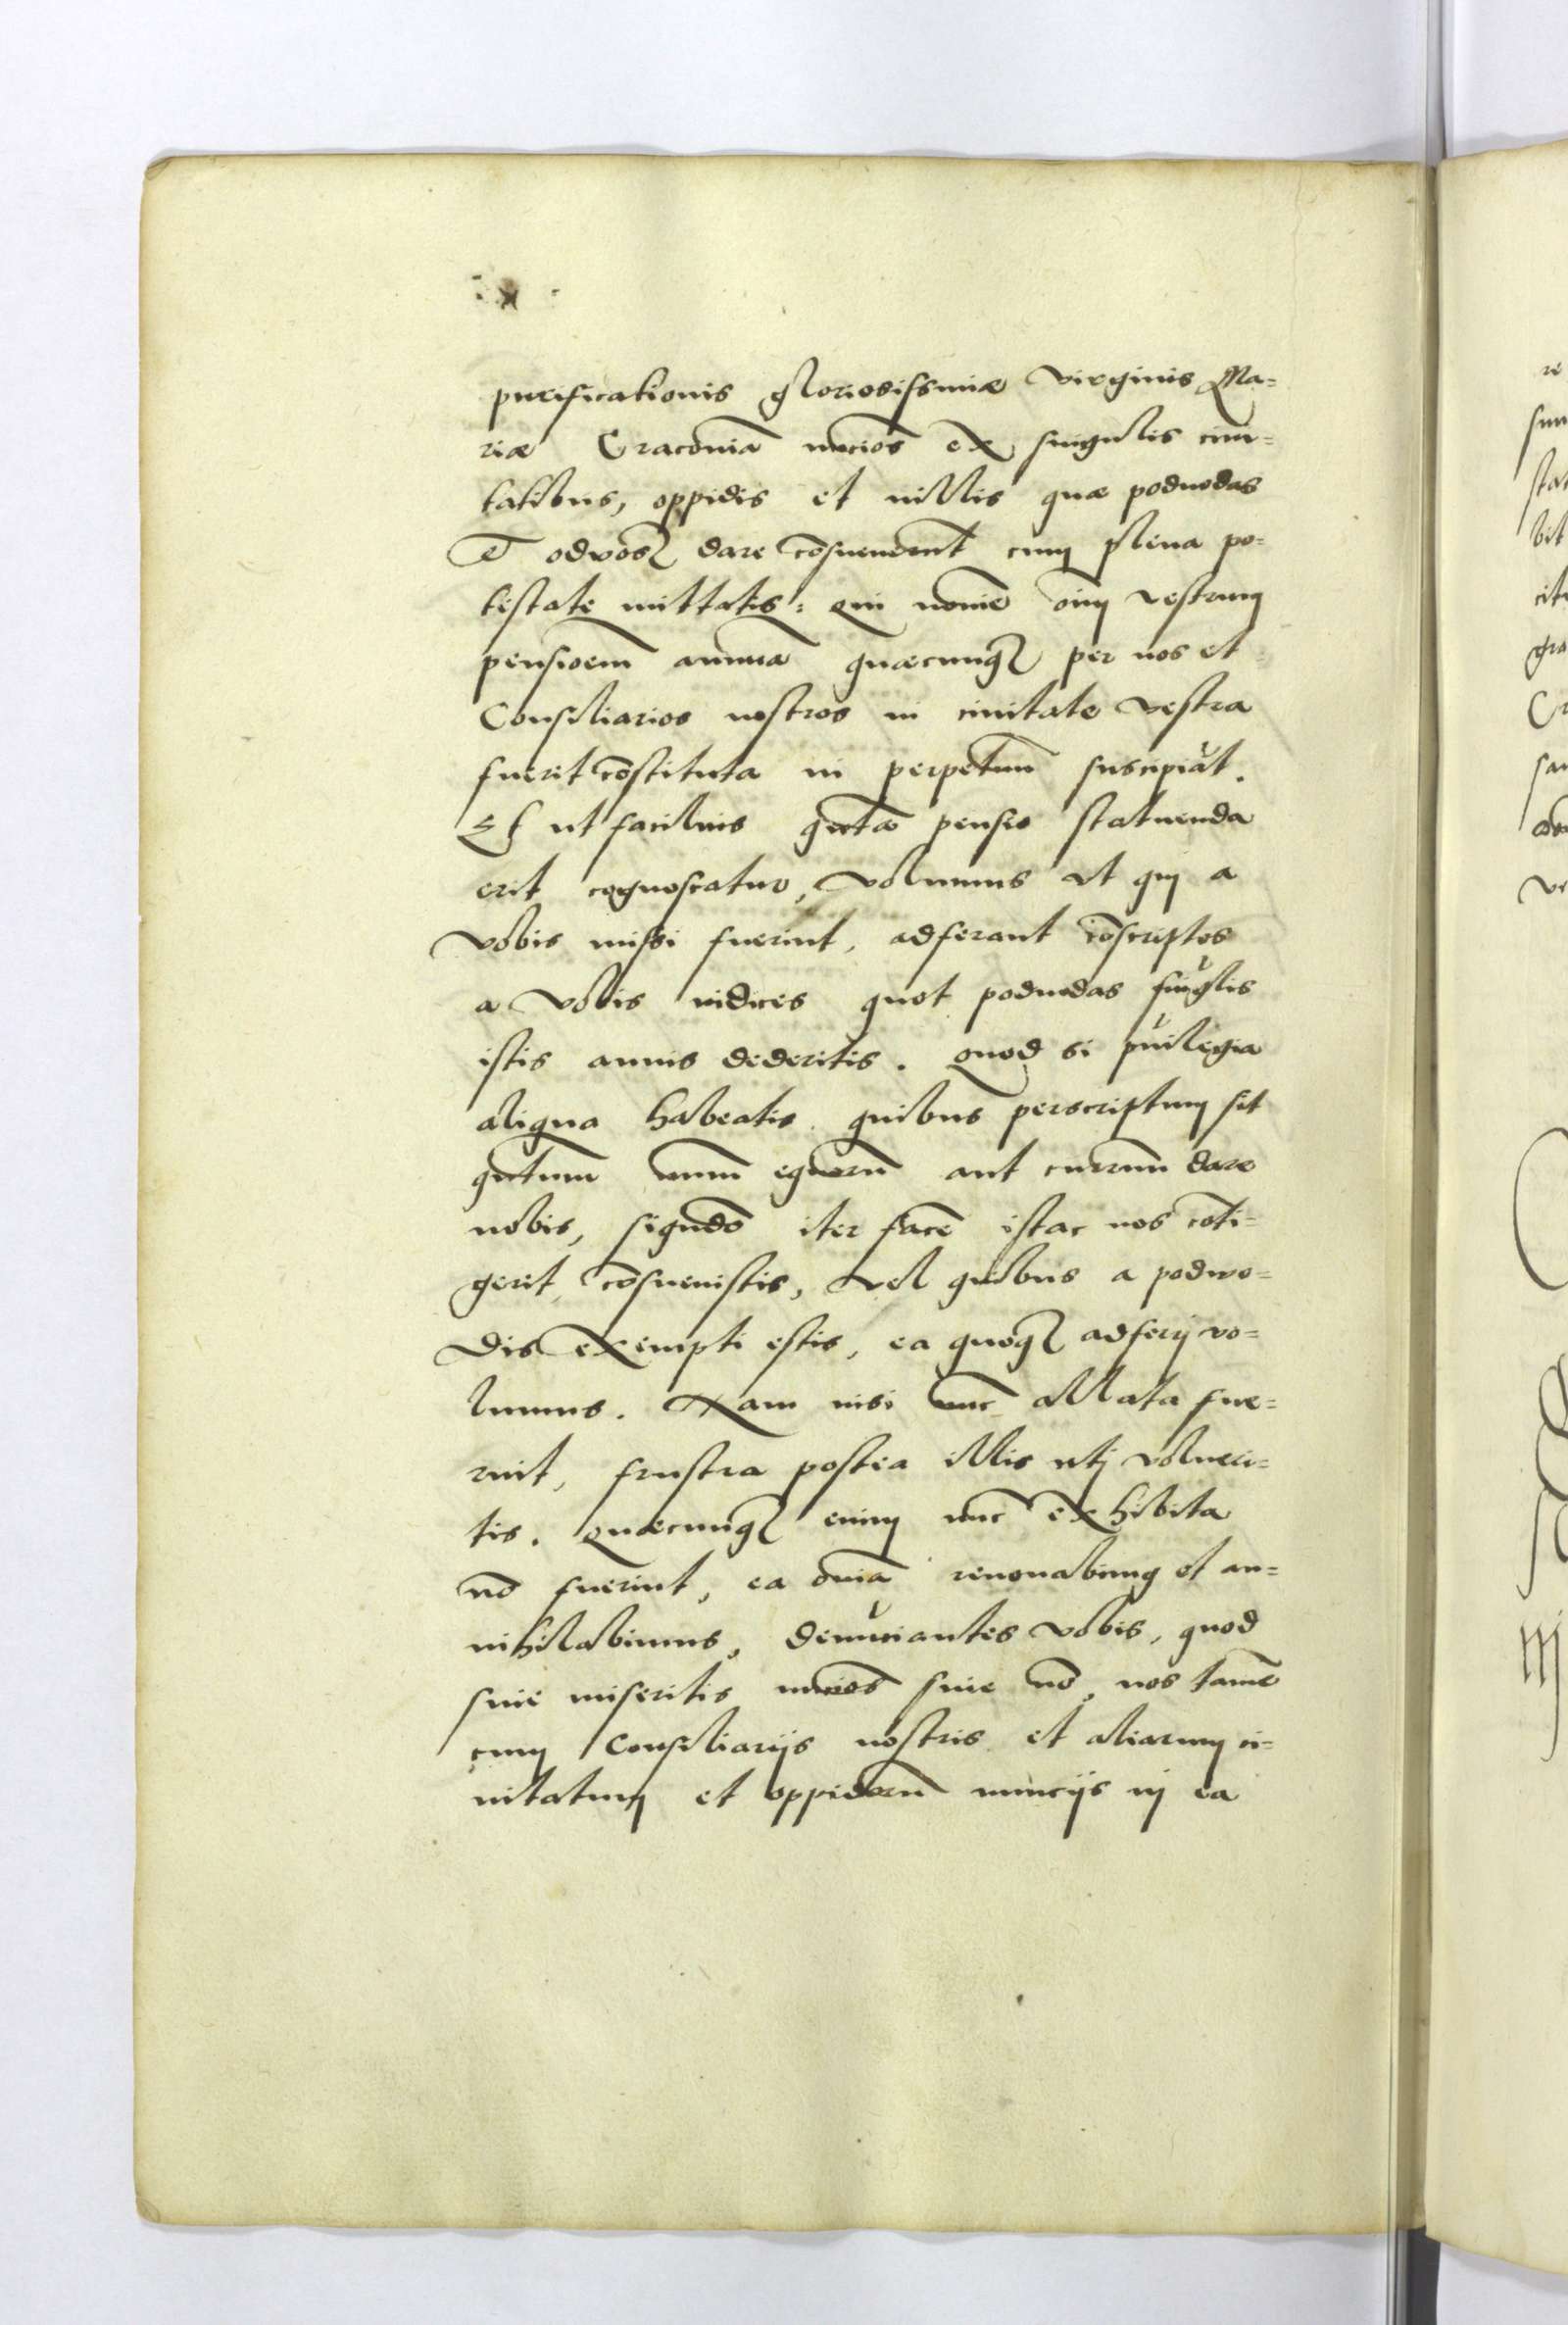 purificationis gloriosissimæ virginis Ma=
riæ Cracouiã nũcios ex singulis ciui=
tatibus, oppidis et uillis quæ poduodas
dare cõsueuerũt cum plena po=
testate mittatis: qui nomiẽ oĩm vestrum
pensioem̃ annuã quæcunqꝫ per nos et
Consiliarios nostros in ciuitate vestra
fuerit cõstituta in perpetuũ suscipiãt.
Et ut facilius quãta pensio statuenda
erit cognoscatur, volumus ut qui a
vobis missi fuerint, adferant cõscriptos
a vobis indices quot poduodas singlis
istis annis dederitis. Quod si puilegia
aliqua habeatis quibus perscriptum sit
qũtum uinũ equorũ aut currum̃ dare
nobis, siqũdo iter facẽ istac nos cõti=
gerit, cõsueuistis, vel quibus a podwo=
dis exempti estis, ea quoqꝫ adferij vo=
lumus. Nam nisi nũc allata fue=
rint, frustra postea illis utj volueri=
tis. Quæcunqꝫ enim nũc exhibita
nõ fuerint, ea oĩa reuocabimꝰ et an=
nihilabimus, denũciantes vobis, quod
siue miseritis nũcios siue nõ, nos tamẽ
cum Consiliarijs nostris et aliarum ci=
uitatum et oppidorũ nuncijs ij ea